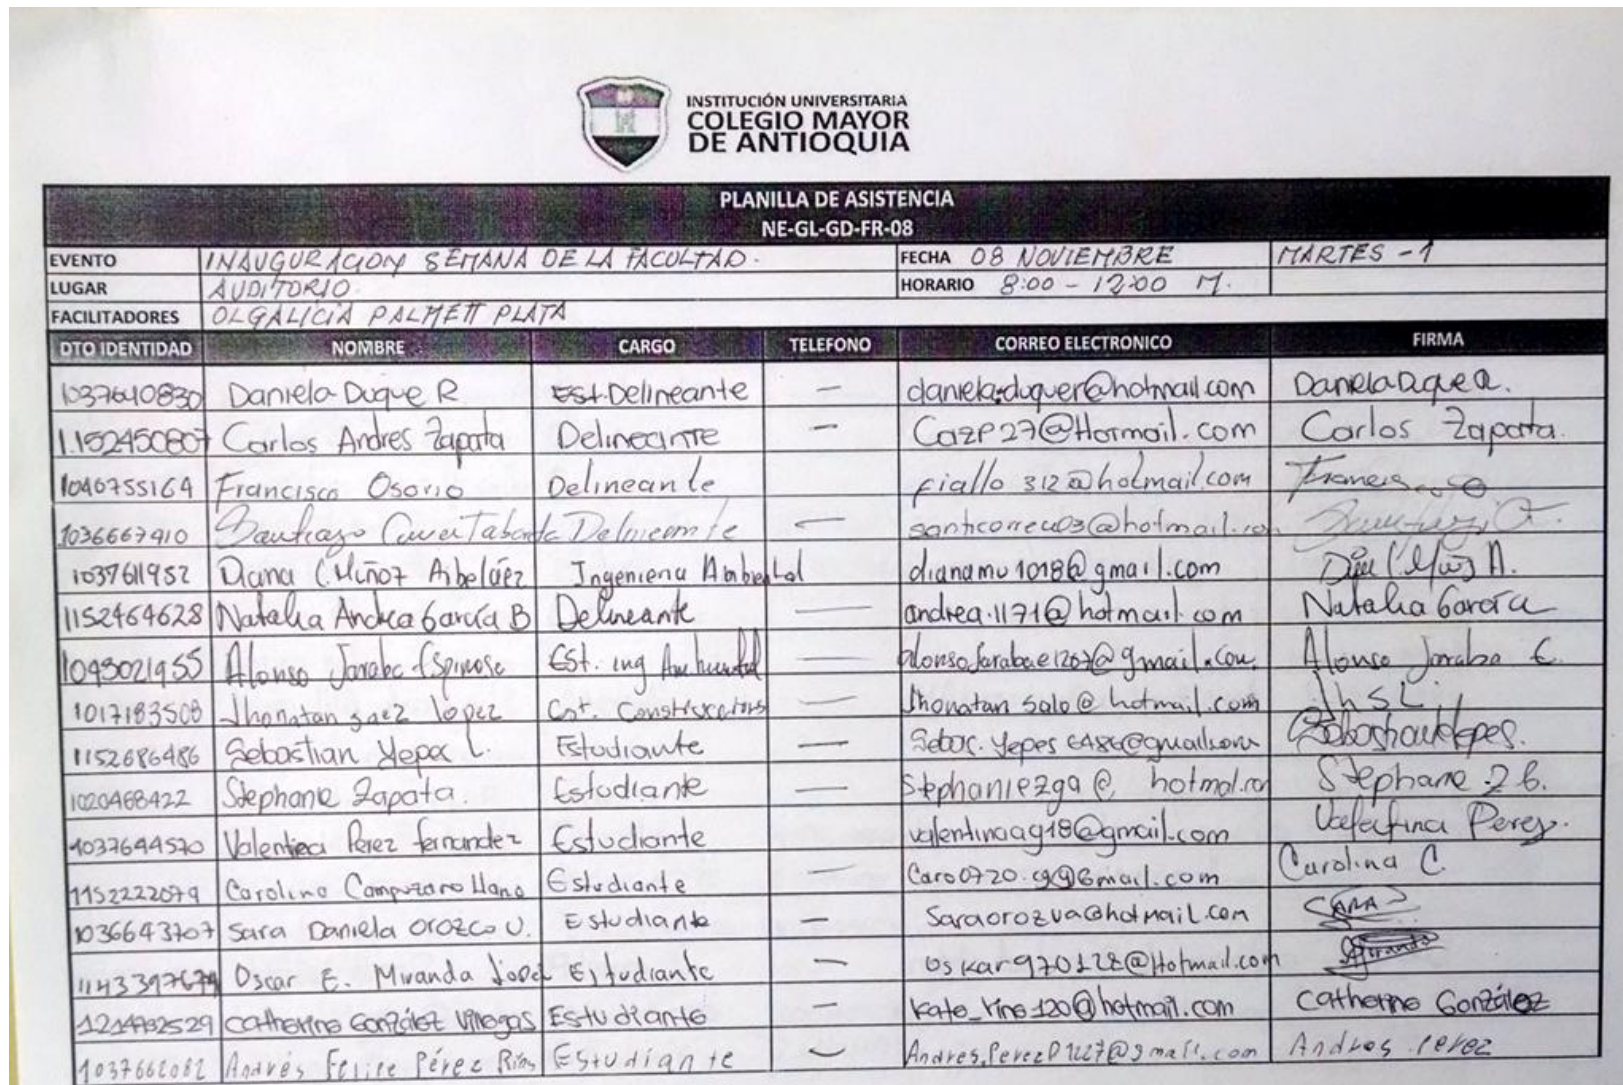 INSTITUCIÓN UNIVERSITARIA
COLEGIO MAYOR
DE ANTIOQUIA
PLANILLA DE ASISTENCIA
NE-GL-GD-FR-08
EVENTO INAUGURACION SEMANA DE LA FACULTAD. FECHA 08 NOVIEMBRE MARTES - 1
LUGAR AUDITORIO. HORARIO 8:00 - 12:00 M.
FACILITADORES OLGALICIA PALMETT PLATA
DTO IDENTIDAD NOMBRE CARGO TELEFONO CORREO ELECTRONICO FIRMA
1037610830 Daniela Duque R Est. Delineante — daniela.duquer@hotmail.com Daniela Duque R.
1152450807 Carlos Andres Zapata Delineante — Cazp27@Hotmail.com Carlos Zapata.
1040755164 Francisco Osorio Delineante fiallo312@hotmail.com
1036667910 Santiago Delineante — santicorreu03@hotmail.com
1037611952 Diana C. Muñoz Arbeláez Ingenieria Ambiental dianamu1018@gmail.com
1152464628 Natalia Andrea García B Delineante — andrea.1171@hotmail.com Natalia García
1093021955 Alonso Jaraba Espinosa Est. ing Ambiental — alonsojarabae1207@gmail.com Alonso Jaraba E.
1017183508 Jhonatan saez lopez Est. — Jhonatan salo@hotmail.com JhSL
1152686486 Sebastian Yepes L. Estudiante — Sebas.Yepes6486@gmail.com Sebastian Yepes.
1020468422 Stephanie Zapata. Estudiante — Stephaniezga@ hotmal.com Stephanie Z G.
1037644570 Valentina Pérez fernandez Estudiante — valentinaag18@gmail.com Valentina Perez.
1152222079 Carolina Campuzano Llano Estudiante — Caro0720.99@Gmail.com Carolina C.
1036643707 Sara Daniela Orozco U. Estudiante — Saraorozva@hotmail.com SARA
Oscar E. Miranda Estudiante — Oskar970128@Hotmail.com
Catherine González Villegas Estudiante — Kate_rine120@hotmail.com Catherine González
1037662062 Andrés Felipe Pérez Ríos Estudiante — Andres.PerezP1227@gmail.com Andres Perez